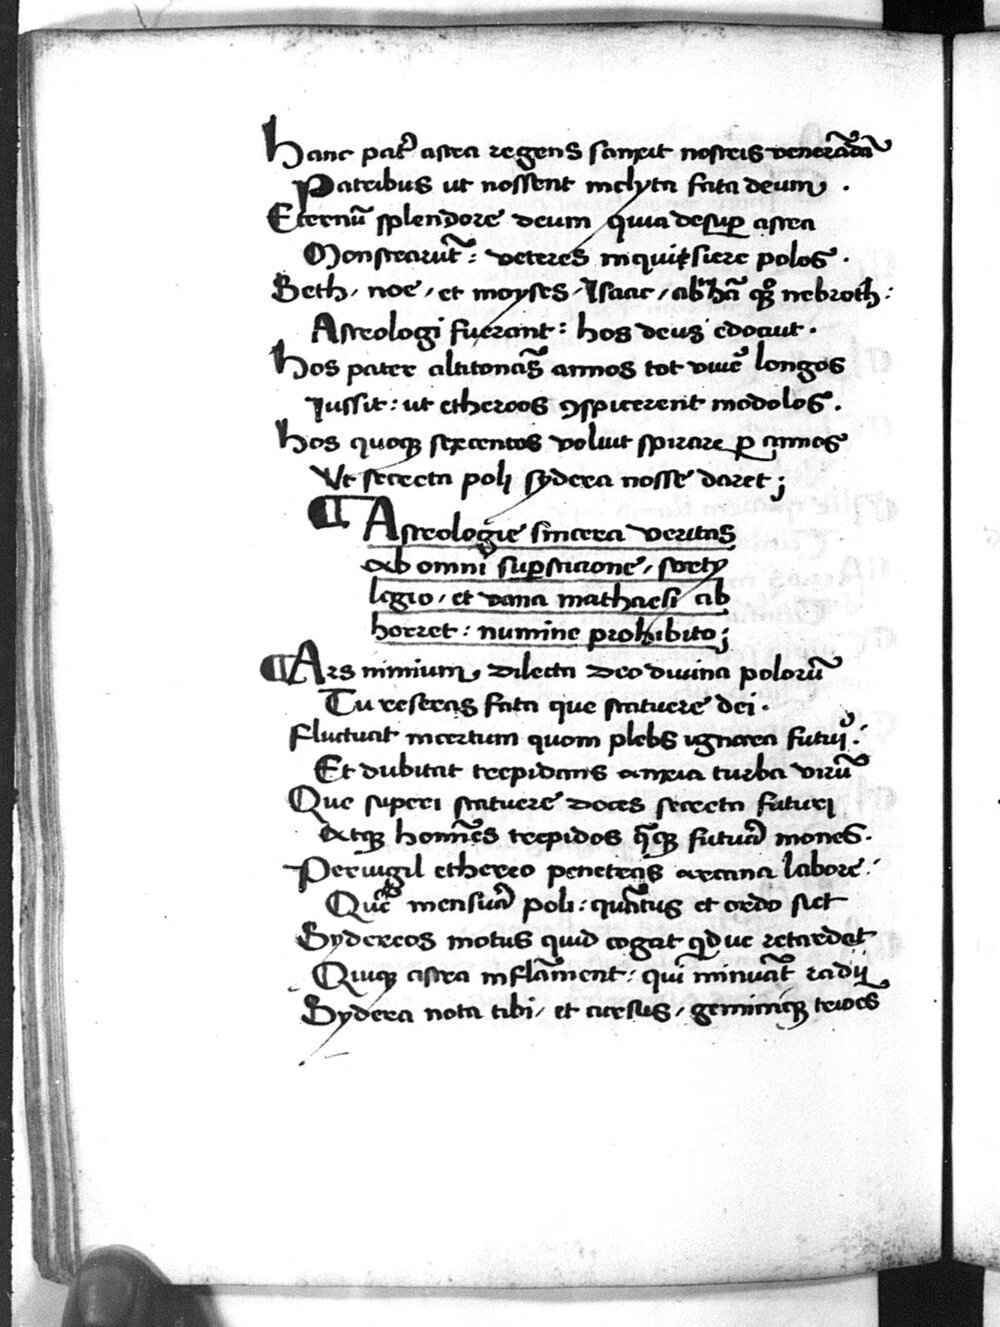 Hanc pat᷑ astra regens sanxit nostris venerãdã
Patribus ut nossent inclyta fata deum .
Eternũ splendore deum quia desuꝑ astra
Monstrarũt : veteres inquisiere polos .
Seth / noe / et moyses / Isaac / abrhã qꝫ nebroth :
Astrologi fuerant : hos deus edocuit .
Hos pater altitonãs annos tot viuẽ longos
Iussit : ut ethereos ꝯspicerent modolos .
Hos quoqꝫ sexcentos voluit spirare ꝑ annos
Vt secreta poli sydera nosse daret ;
¶ Astrologie sincera veritas
ab omni suꝑsticione / sorty
legio / et vana mathaesi ab
horret : numine prohibito ;
¶ Ars nimium dilecta deo diuina polorũ
Tu reseras fata que statuere dei .
Fluctuat incertum quom plebs ignara futuri :
Et dubitat trepidans anxia turba virũ
Que superi statuere doces secreta futuri
Atqꝫ homĩes trepidos hĩcqꝫ futura mones .
Peruigil ethereo penetras arcana labore :
Que mensura poli : quãtus et ordo siet
Sydereos motus quid cogat qd ue retardet
Quiqꝫ astra inflãment : qui minuãt radij
Sydera nota tibi / et cursus / geminiqꝫ triões